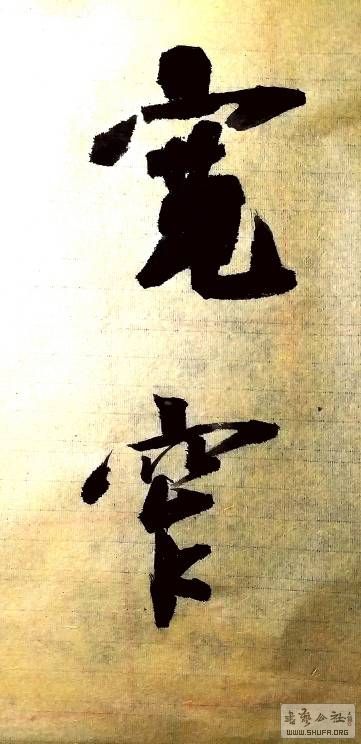 宽窄
書法公社
WWW.SHUFA.ORG